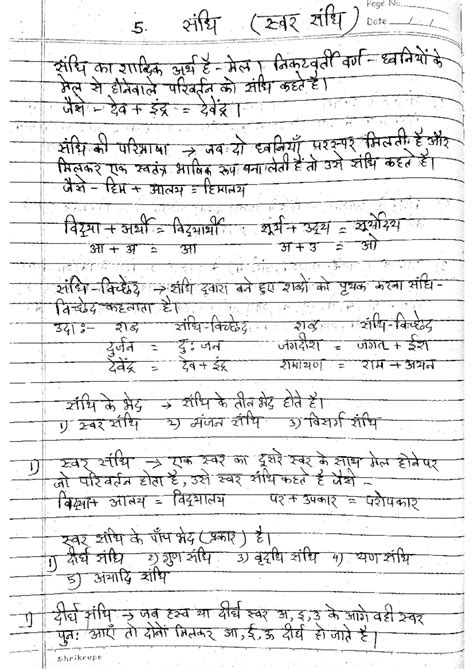 Page No.
5. संधि (स्वर संधि) Date / /
संधि का शाब्दिक अर्थ है - मेल। निकटवर्ती वर्ण - ध्वनियों के
मेल से होनेवाले परिवर्तन को संधि कहते है।
जैसे - देव + इंद्र = देवेंद्र।
संधि की परिभाषा → जब दो ध्वनियाँ परस्पर मिलती है और
मिलकर एक स्वतंत्र भाषिक रूप बना लेती है तो उसे संधि कहते है।
जैसे - हिम + आलय = हिमालय
विद्या + अर्थी = विद्यार्थी सूर्य + उदय = सूर्योदय
आ + अ = आ अ + उ = ओ
संधि-विच्छेद → संधि द्वारा बने हुए शब्दों को पृथक करना संधि-
विच्छेद कहलाता है।
उदा :- शब्द संधि-विच्छेद शब्द संधि-विच्छेद
दुर्जन = दुः जन जगदीश = जगत + ईश
देवेंद्र = देव + इंद्र रामायण = राम + अयन
संधि के भेद → संधि के तीन भेद होते है।
1) स्वर संधि 2) व्यंजन संधि 3) विसर्ग संधि
1) स्वर संधि → एक स्वर का दूसरे स्वर के साथ मेल होने पर
जो परिवर्तन होता है, उसे स्वर संधि कहते है जैसे -
विद्या + आलय = विद्यालय पर + उपकार = परोपकार
स्वर संधि के पाँच भेद (प्रकार) है।
1) दीर्घ संधि 2) गुण संधि 3) वृद्धि संधि 4) यण संधि
5) अयादि संधि
1) दीर्घ संधि → जब हस्व या दीर्घ स्वर अ, इ, उ के आगे वही स्वर
पुनः आएँ तो दोनों मिलकर आ, ई, ऊ दीर्घ हो जाते है।
Shrikrupa